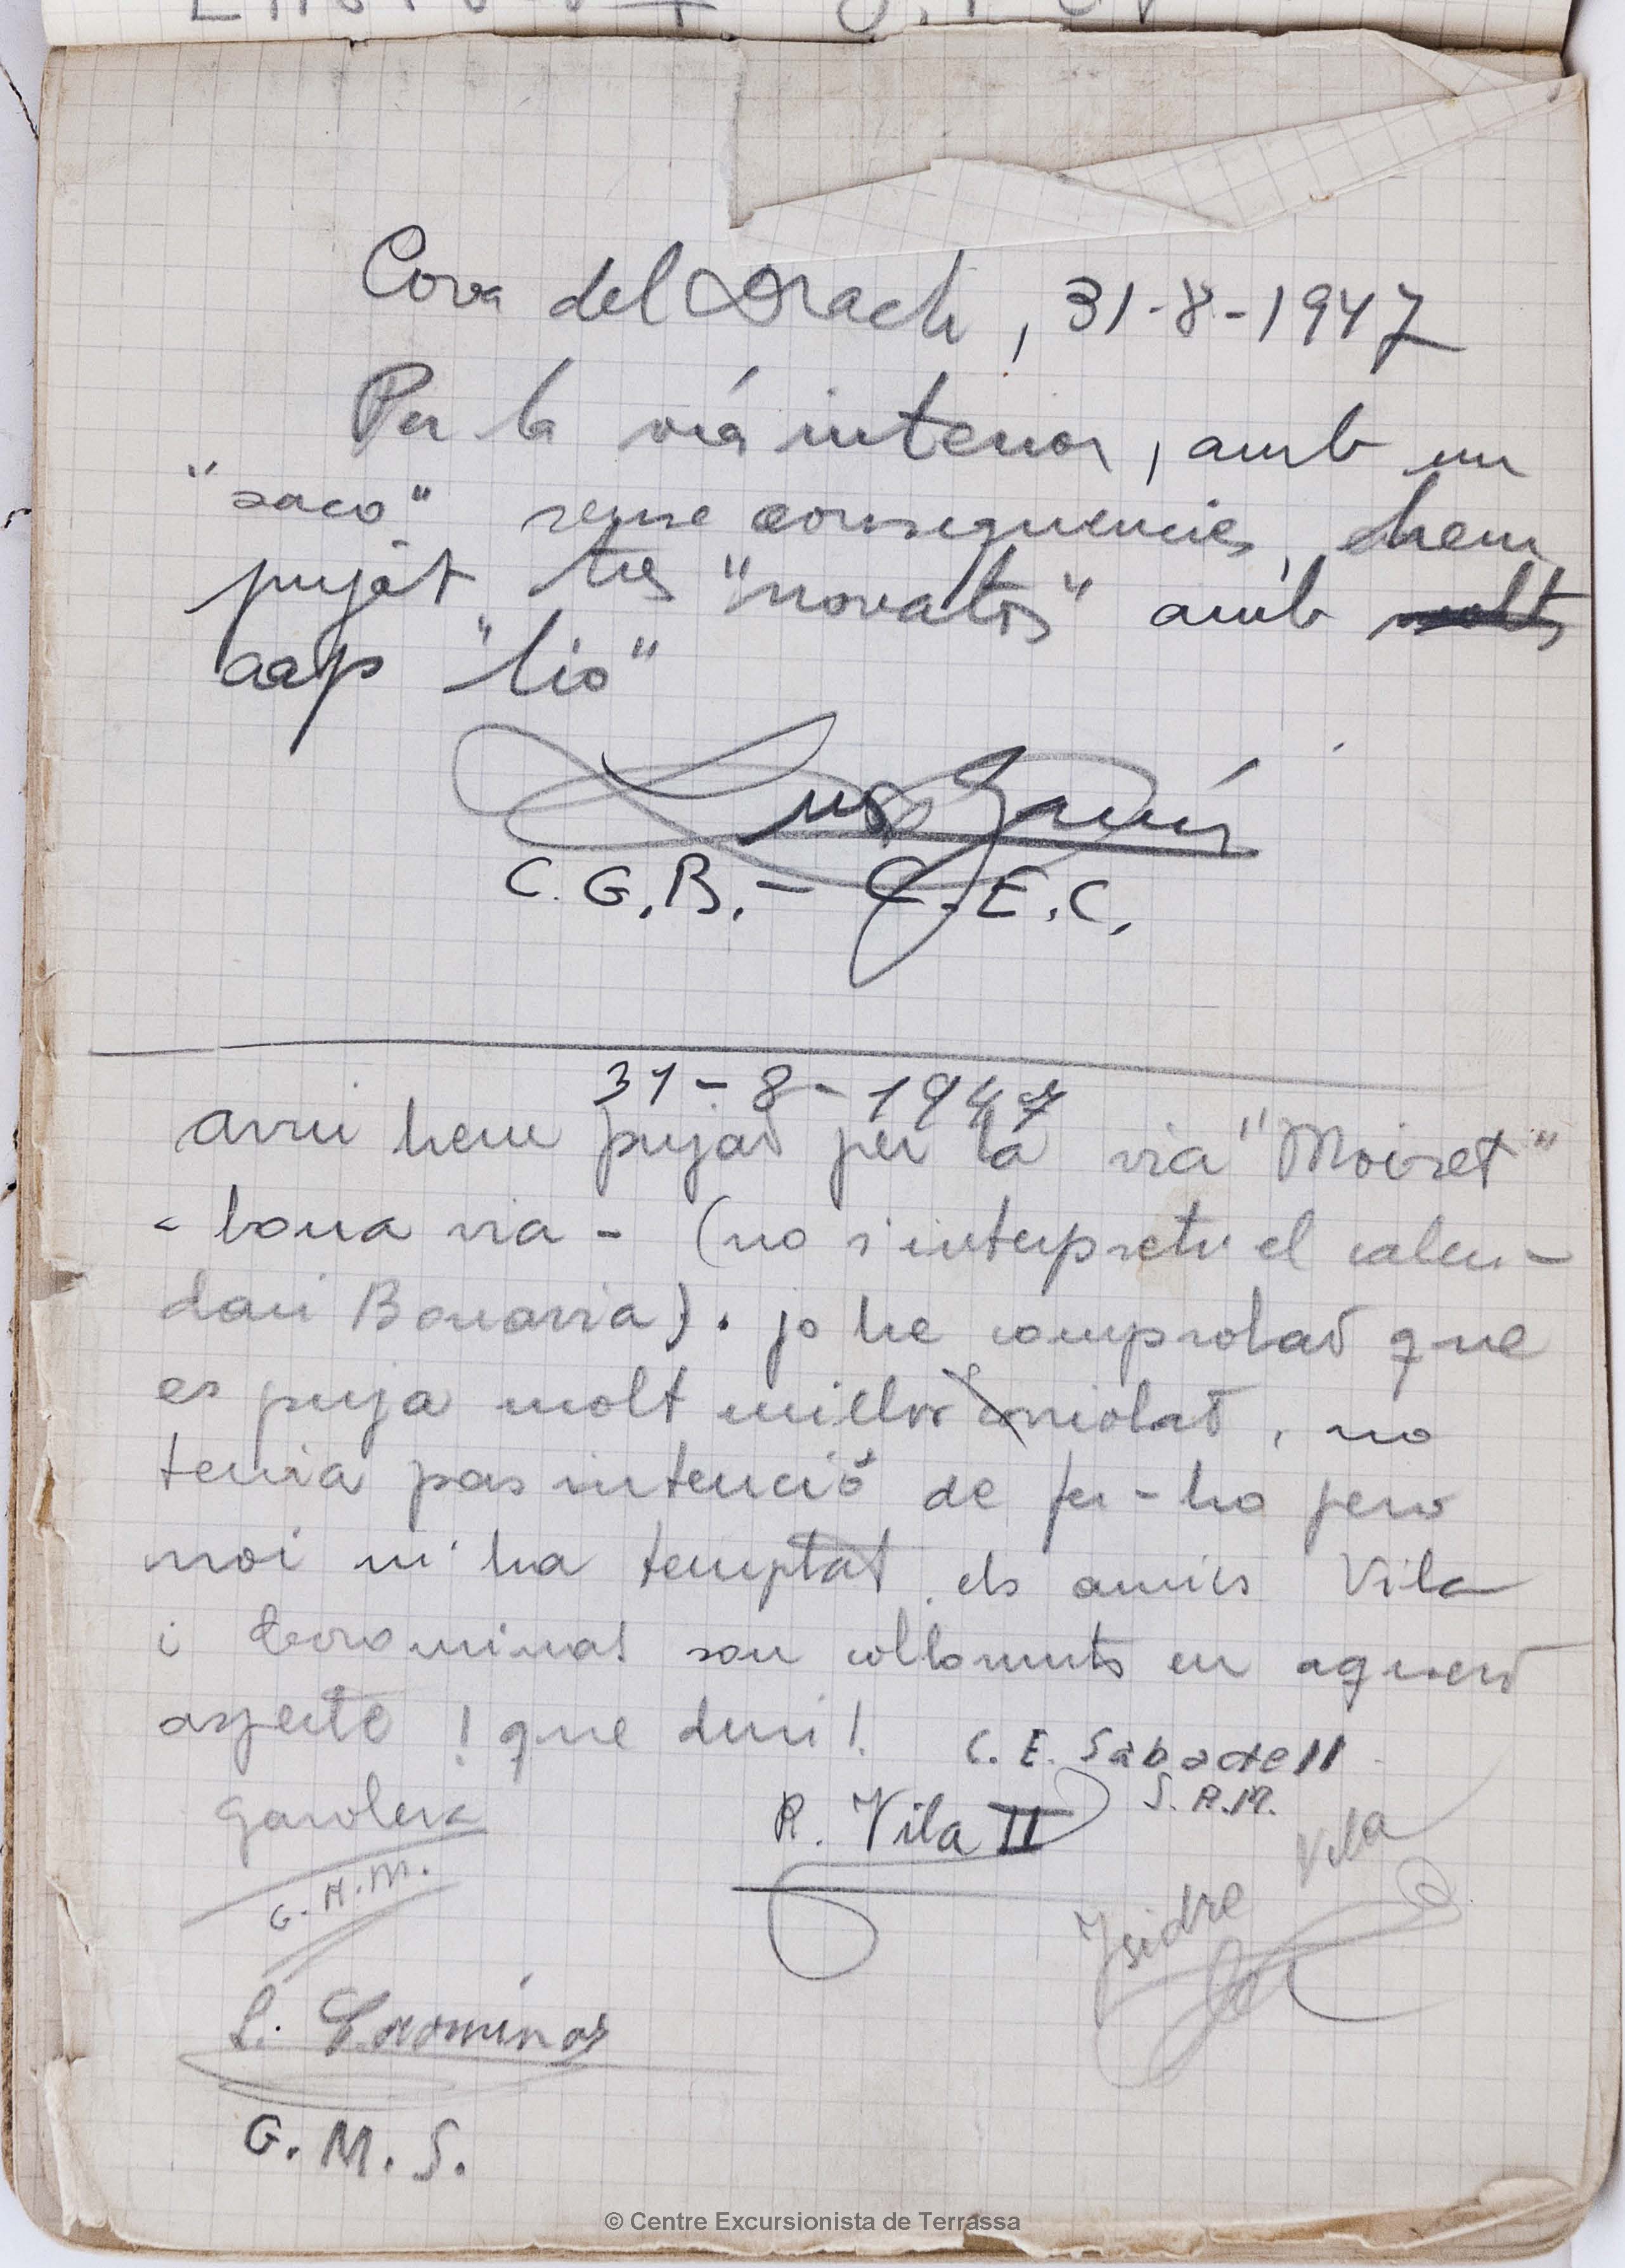 Cova del Drach, 31-8-1947
Per la viá interior, amb un
"saco" sense consequencies, hem
pujàt tres "novatos" amb molts
cap "lio"
C.G.B. - C.E.C.
31-8-1947
avui hem pujad per la via "Moixet"
- bona via - (no s'interpreti el calen-
dari Bonavia). jo he comprobad que
es puja molt millor violad, no
tenia pas intenció de fer-ho pero
noi m'ha temptat els amics Vila
i Corominas son collonuts en aquesd
aspecte ! que duri !.
C. E. Sabadell
S.A.M.
Garolera
G.A.M.
R. Vila II
Isidre Vila
L. Coróminas
G. M. S.
© Centre Excursionista de Terrassa